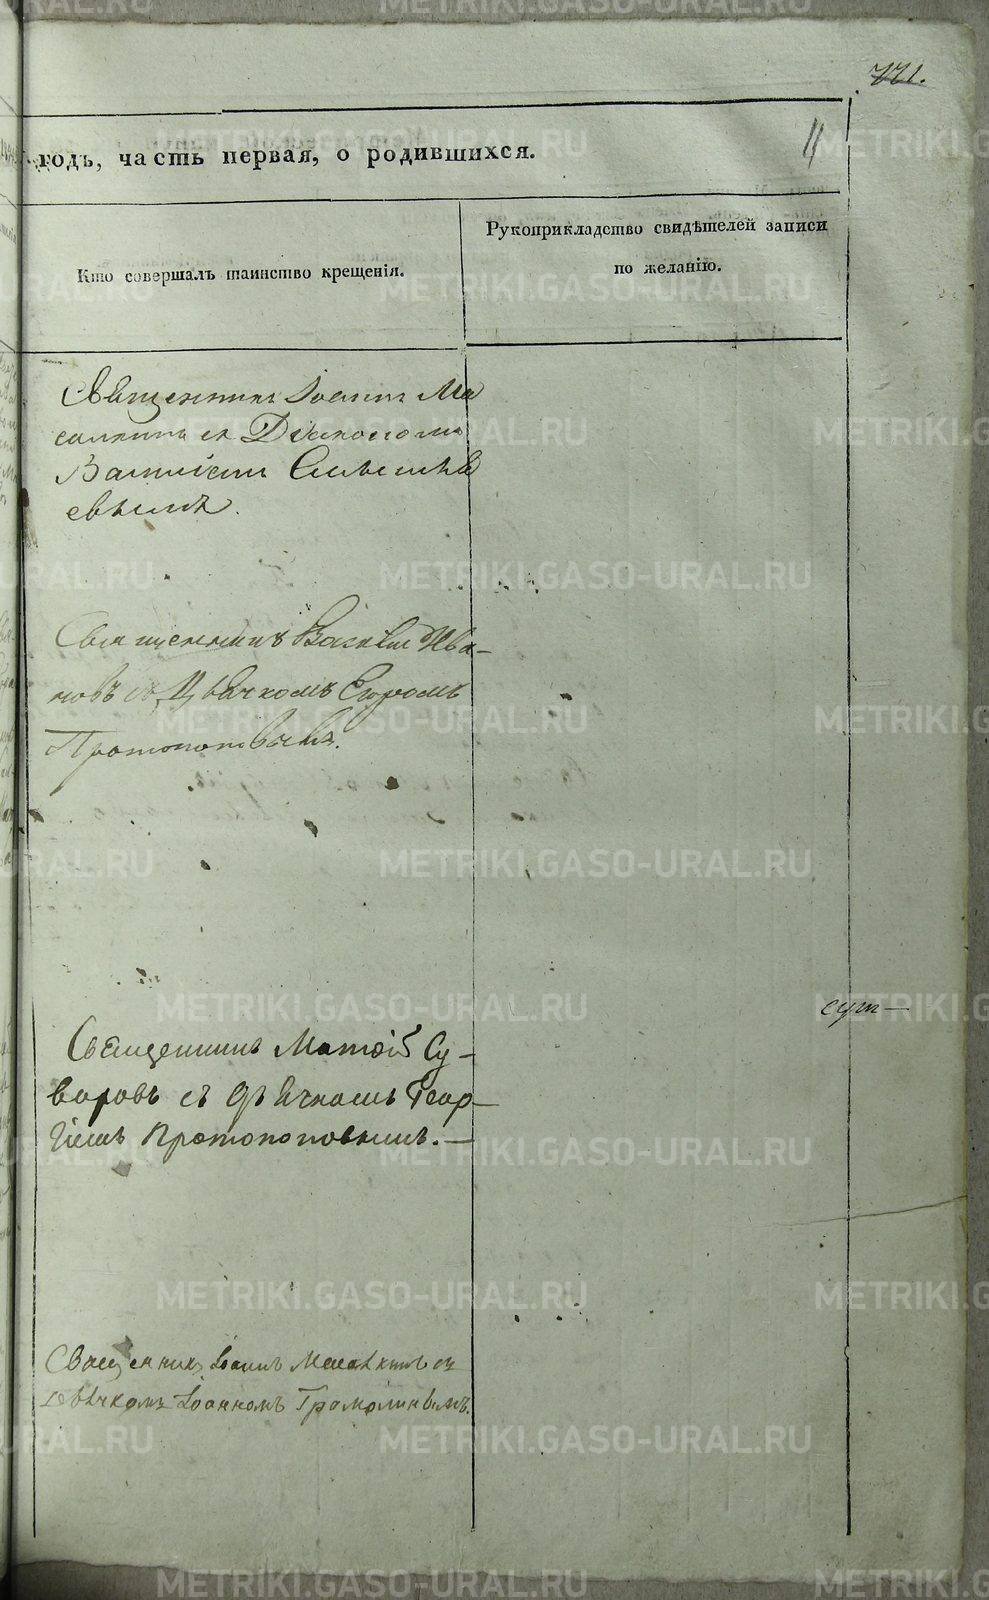 771.
11
годъ, часть первая, о родившихся.
Кто совершалъ таинство крещенія.
Рукоприкладство свидѣтелей записи
по желанію.
Священникъ Іоаннъ Ма
съ Діакономъ
евымъ.
Священникъ Василій Ива-
новъ съ Дьячкомъ Егоромъ
Протопоповымъ.
сут—
Священникъ Матѳій Су-
воровъ съ дьячкомъ Геор-
гіемъ Протопоповымъ.—
Священникъ Іоаннъ съ
дьячкомъ Іоанномъ Грамолинымъ.
METRIKI.GASO-URAL.RU